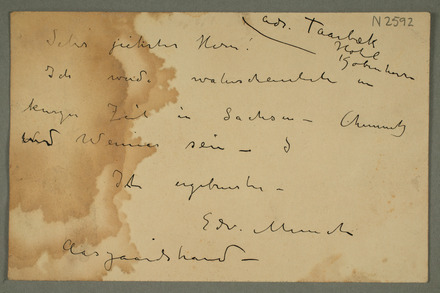 N 2592
adr. Taarbæk
Hotel
Kobenhavn
Sehr geehrter Herr!
Ich werde wahrscheinlich in
kurzer Zeit in Sachsen – Chemnitz
und Weimar sein –
Ihr ergebenster –
Edv. Munch
Aasgaardstrand –